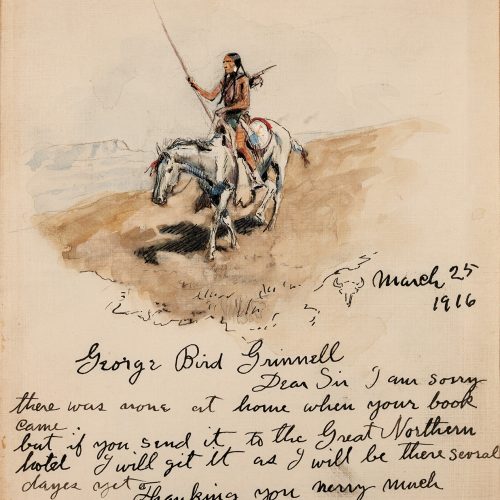 March 25
1916
George Bird Grinnell
Dear Sir I am sorry
there was none at home when your book
came
but if you send it to the Great Northern
hotel I will git It as I will be there seoral
dayes yet
Thanking you verry much